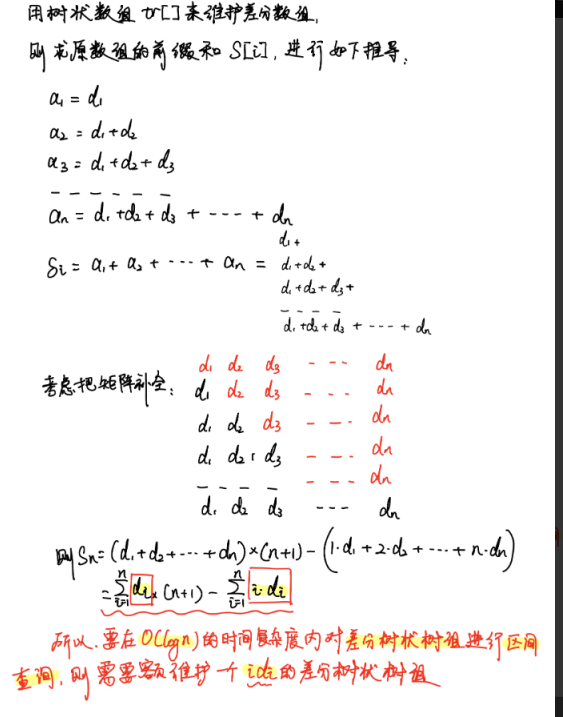 用树状数组 tr[] 来维护差分数组,
则求原数组的前缀和 S[i], 进行如下推导:
a₁ = d₁
a₂ = d₁+d₂
a₃ = d₁+d₂+d₃
— — — — — —
aₙ = d₁+d₂+d₃ + ---- + dₙ
Sᵢ = a₁+a₂+ ··· + aₙ = d₁+
d₁+d₂+
d₁+d₂+d₃+
— — — —
d₁+d₂+d₃ + ---- + dₙ
考虑把矩阵补全:
d₁ d₂ d₃ - --- dₙ
d₁ d₂ d₃ - - - . dₙ
d₁ d₂ d₃ - - - . dₙ
d₁ d₂ d₃ - - - . dₙ
— — — — - - - . dₙ
d₁ d₂ d₃ --- dₙ
则 Sₙ = (d₁+d₂+···+dₙ)×(n+1) - (1·d₁+2·d₂+···+n·dₙ)
= ∑ⁿᵢ₌₁ dᵢ × (n+1) - ∑ⁿᵢ₌₁ i·dᵢ
所以, 要在 O(logn) 的时间复杂度内对差分树状树组进行区间
查询, 则需要额维护一个 idᵢ 的差分树状树组